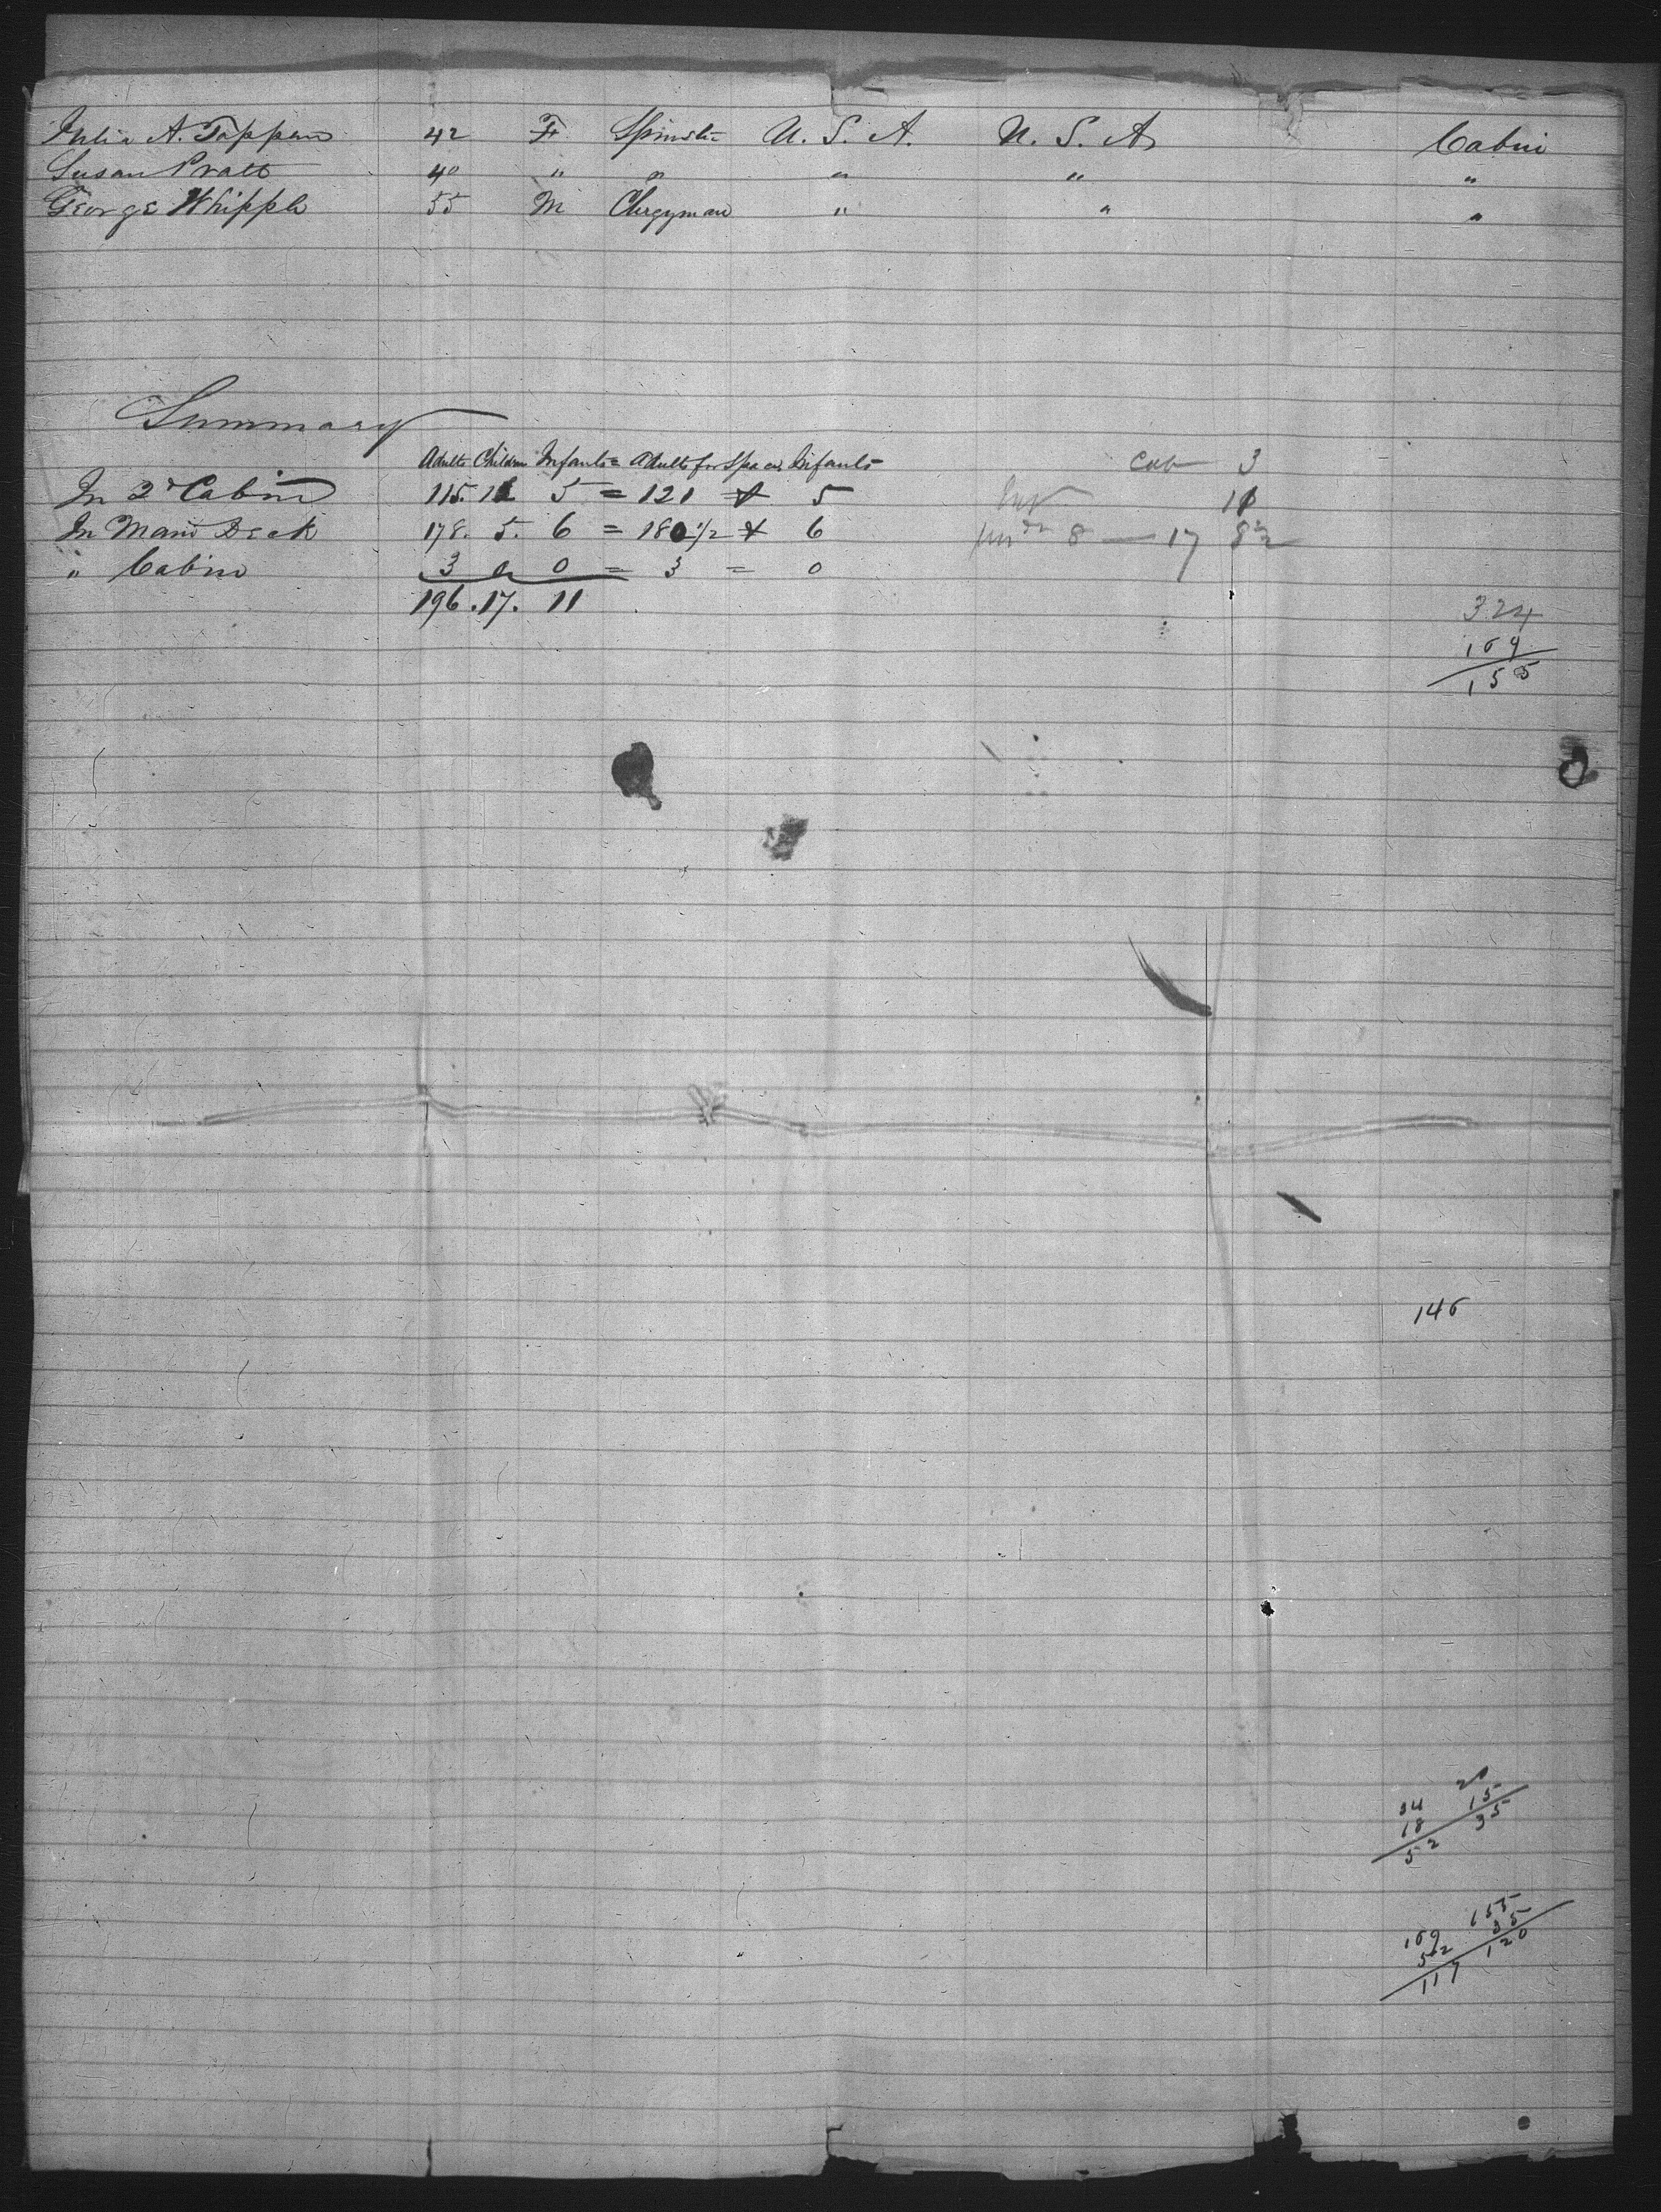 Julia A. Tappan 42 F Spinster U. S. A. U. S. A Cabin
Susan Pratt 40 " " " " "
George Whipple 55 M Clergyman " " "
Summary
Adults Children Infants = Adults for Space Infants
In 2d Cabin 115. 12 5 = 121 & 5
In Main Deck 178. 5. 6 = 180 1/2 & 6
" Cabin 3 0 0 = 3 = 0
196. 17. 11
Cab 3
Inf 11
8 — 17 8 1/2
324
169
155
146
34
18
52
20
15
35
169
52
117
155
35
120